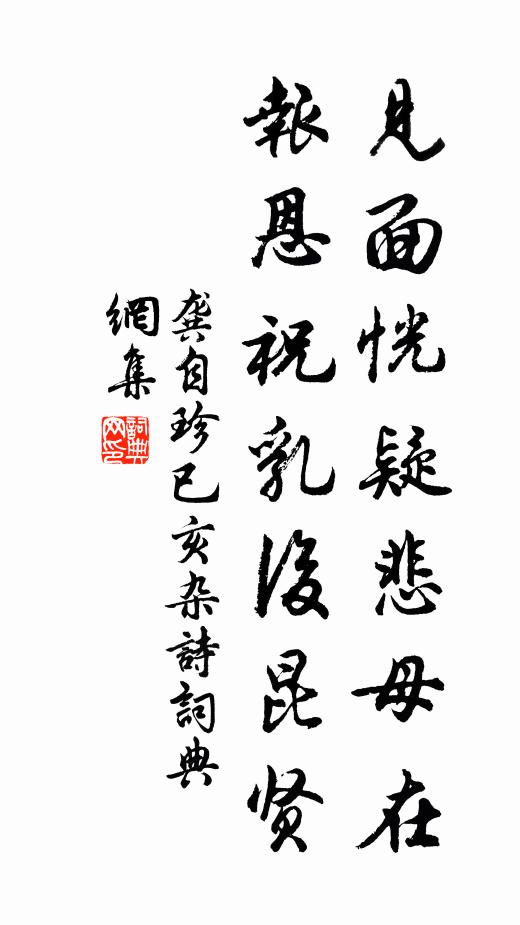 見面恍疑悲母在
報恩祝乳後昆贤
龔自珍己亥杂詩詞典
網集
詞典
网印